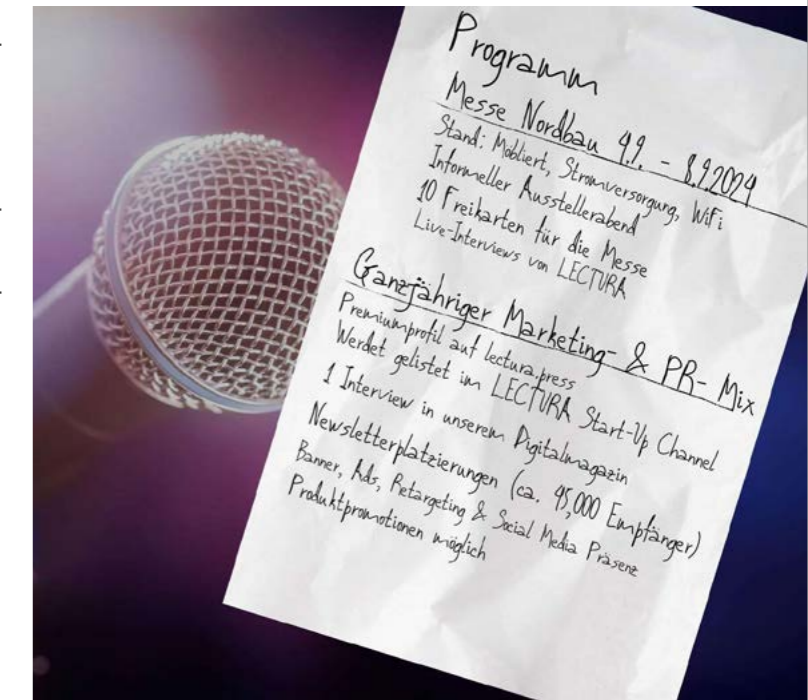 Programm
Messe Nordbau 4.9. - 8.9.2024
Stand: Möbliert, Stromversorgung, WiFi
Informeller Ausstellerabend
10 Freikarten für die Messe
Live-Interviews von LECTURA
Ganzjähriger Marketing- & PR-Mix
Premiumprofil auf lectura.press
Werdet gelistet im LECTURA Start-Up Channel
1 Interview in unserem Digitalmagazin
Newsletterplatzierungen (ca. 45,000 Empfänger)
Banner, Ads, Retargeting & Social Media Präsenz
Produktpromotionen möglich